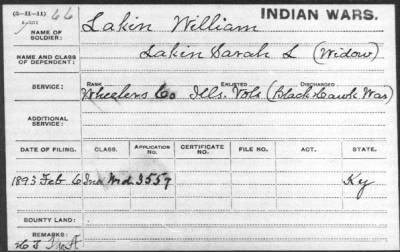 (5-11-11) 66 INDIAN WARS.
NAME OF SOLDIER: Lakin William
NAME AND CLASS OF DEPENDENT: Lakin Sarah L (Widow)
RANK ENLISTED DISCHARGED
SERVICE: Wheelers Co Ills. Vols (Black Hawk War)
ADDITIONAL SERVICE:
DATE OF FILING. CLASS. APPLICATION NO. CERTIFICATE NO. FILE NO. ACT. STATE.
1893 Feb 6 Ind Wid. 3557 Ky
BOUNTY LAND:
REMARKS: